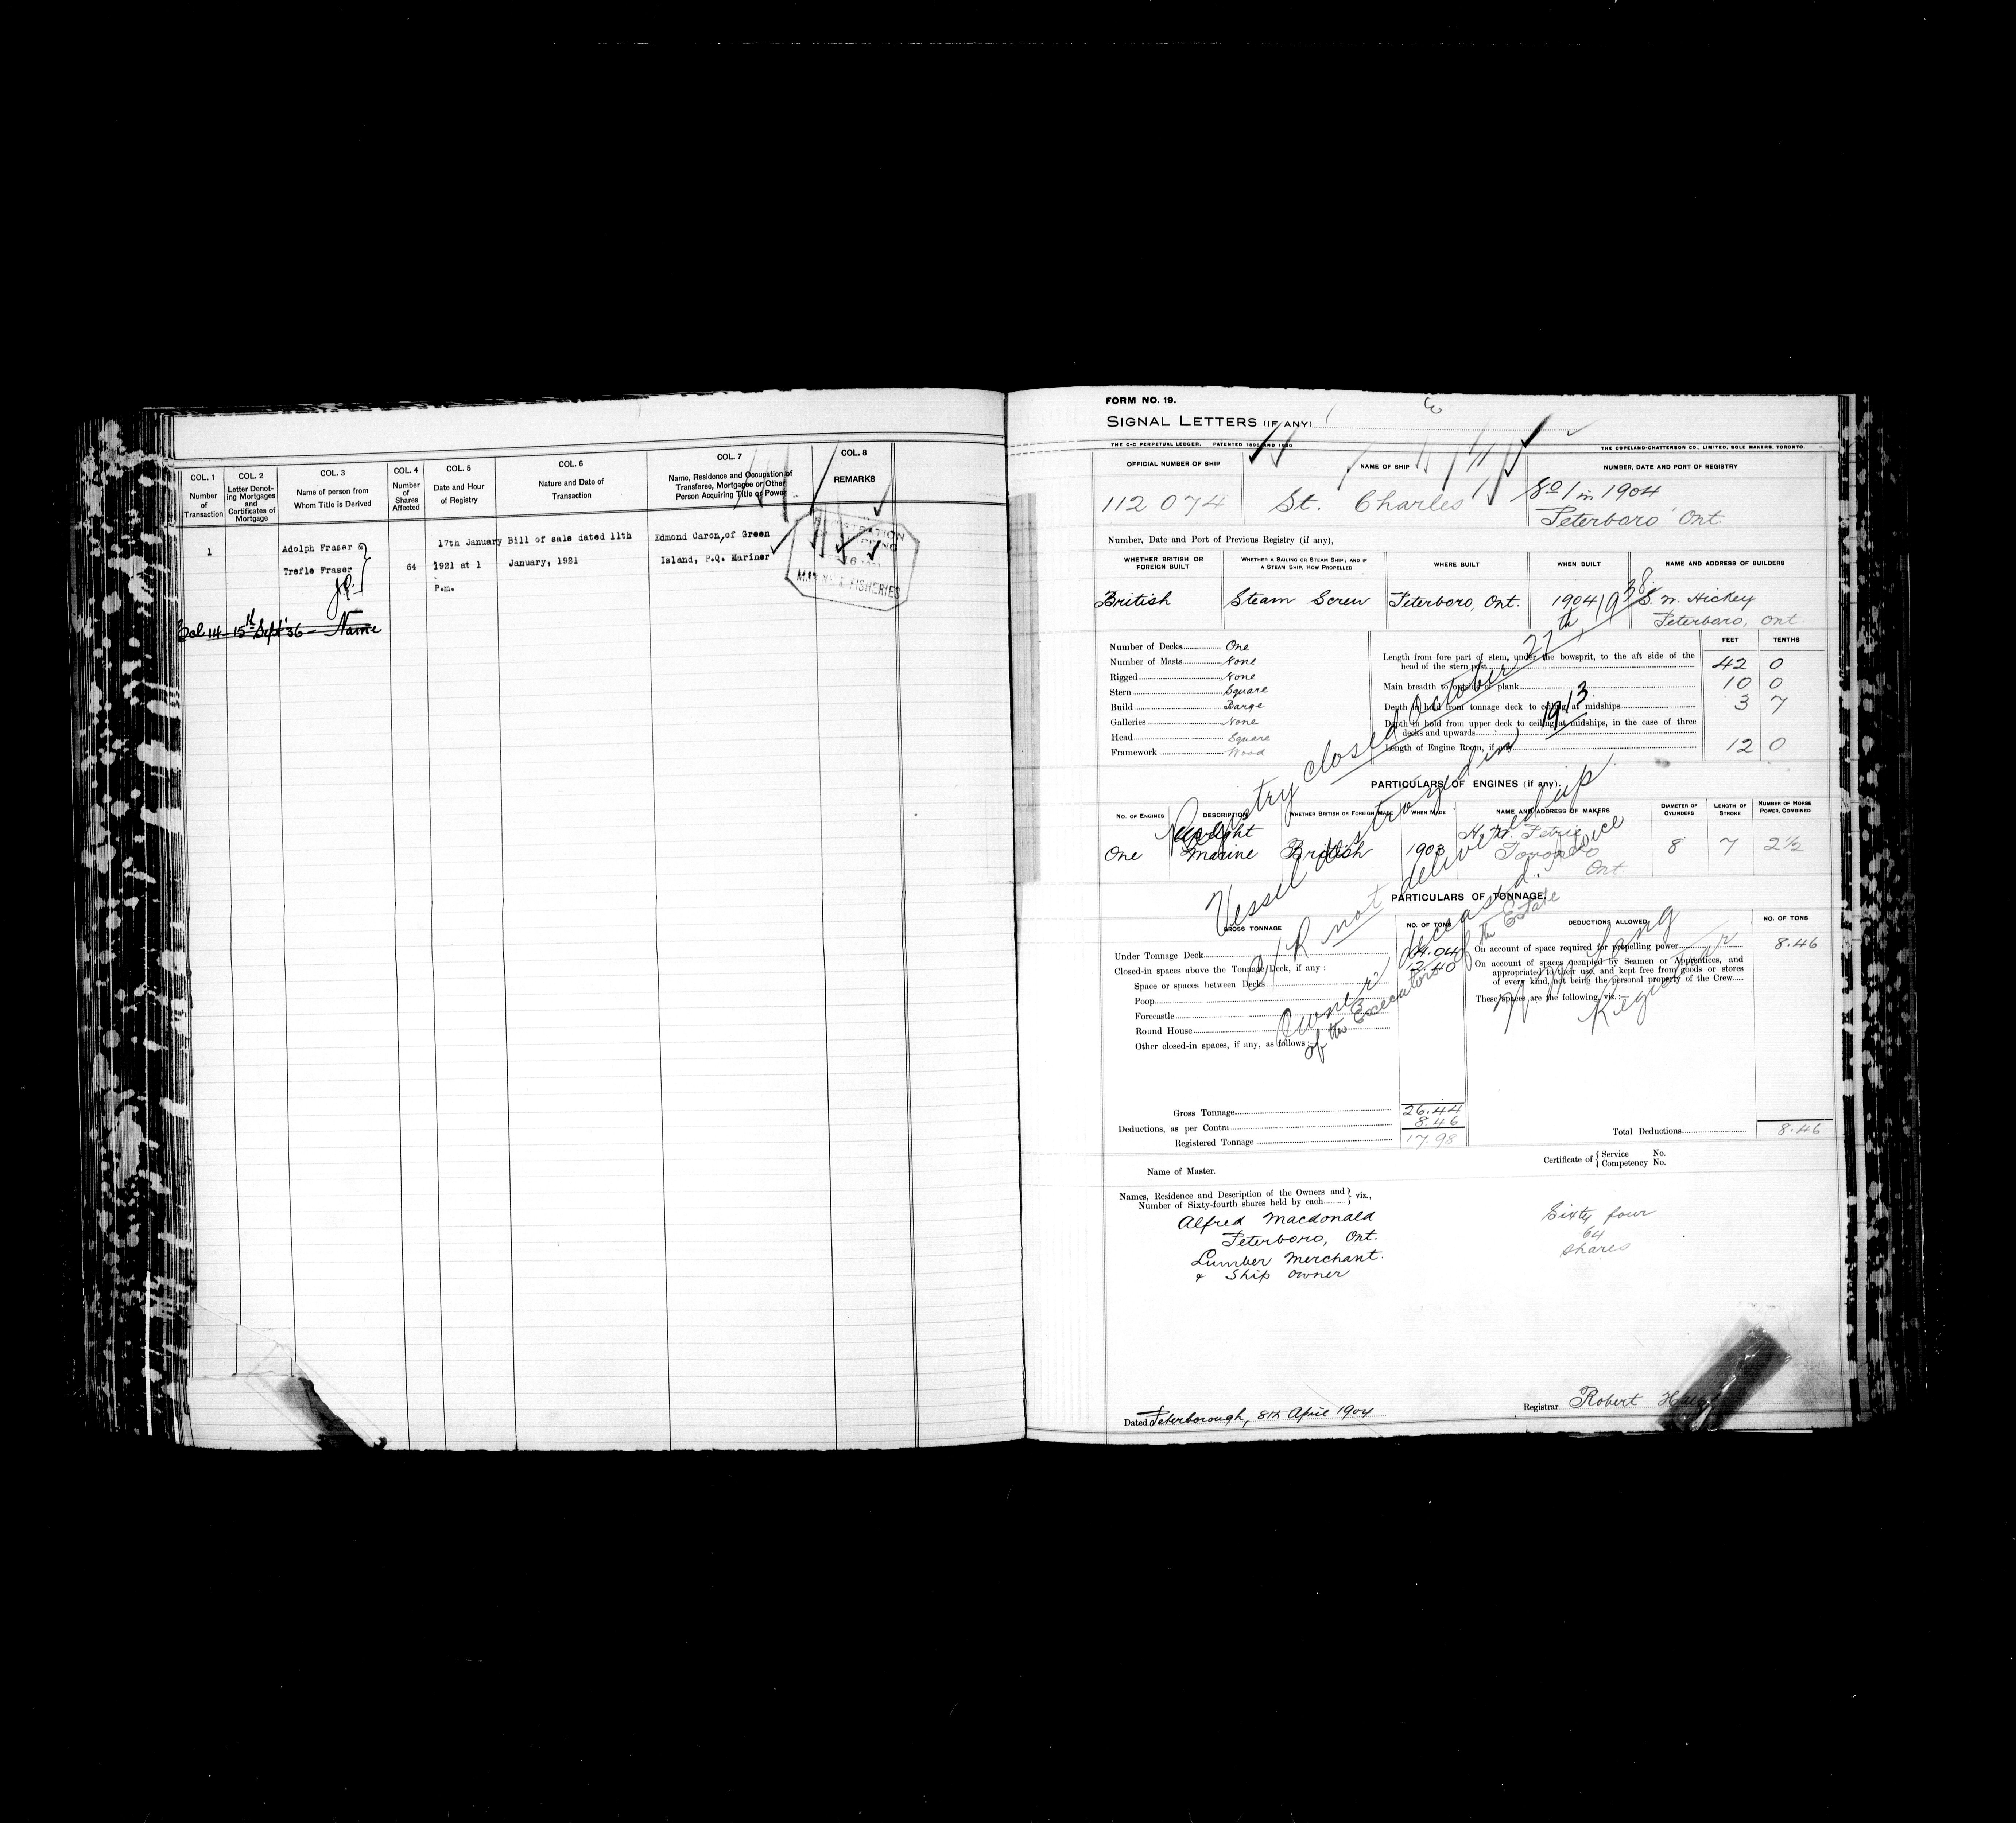 COL. 1
Number
of
Transaction
COL. 2
Letter Denot-
ing Mortgages
and
Certificates of
Mortgage
COL. 3
Name of person from
Whom Title is Derived
COL. 4
Number
of
Shares
Affected
COL. 5
Date and Hour
of Registry
COL. 6
Nature and Date of
Transaction
COL. 7
Name, Residence and Occupation of
Transferee, Mortgagee or Other
Person Acquiring Title or Power
COL. 8
REMARKS
1
Adolph Fraser &
Trefle Fraser
64
17th January
1921 at 1
P.m.
Bill of sale dated 11th
January, 1921
Edmond Caron, of Green
Island, P.Q. Mariner
MARINE & FISHERIES
15th Sept '36 - Name
FORM NO. 19.
SIGNAL LETTERS (IF ANY)
THE C-C PERPETUAL LEDGER. PATENTED 1896 AND 1900
THE COPELAND-CHATTERSON CO., LIMITED, SOLE MAKERS, TORONTO.
OFFICIAL NUMBER OF SHIP
112074
NAME OF SHIP
St. Charles
NUMBER, DATE AND PORT OF REGISTRY
No 1 in 1904
Peterboro' Ont
Number, Date and Port of Previous Registry (if any),
WHETHER BRITISH OR
FOREIGN BUILT
British
WHETHER A SAILING OR STEAM SHIP; AND IF
A STEAM SHIP, HOW PROPELLED
Steam Screw
WHERE BUILT
Peterboro, Ont.
WHEN BUILT
1904
NAME AND ADDRESS OF BUILDERS
S. W. Hickey
Peterboro, Ont.
Number of Decks One
Number of Masts None
Rigged None
Stern Square
Build Barge
Galleries None
Head Square
Framework Wood
FEET TENTHS
Length from fore part of stem, under the bowsprit, to the aft side of the
head of the stern post 42 0
Main breadth to outside of plank 10 0
Depth in hold from tonnage deck to ceiling at midships 3 7
Depth in hold from upper deck to ceiling at midships, in the case of three
decks and upwards
Length of Engine Room, if any 12 0
PARTICULARS OF ENGINES (if any).
NO. OF ENGINES
One
DESCRIPTION
Upright
Marine
WHETHER BRITISH OR FOREIGN MADE
British
WHEN MADE
1903
NAME AND ADDRESS OF MAKERS
H. W. Petrie
Toronto
Ont.
DIAMETER OF
CYLINDERS
8
LENGTH OF
STROKE
7
NUMBER OF HORSE
POWER. COMBINED
2½
Registry closed October 27th 1938.
Vessel destroyed in 1913
C/R not delivered up
Owner deceased.
of the Executors of the Estate
Registrar
PARTICULARS OF TONNAGE.
GROSS TONNAGE
NO. OF TONS
Under Tonnage Deck 14.04
Closed-in spaces above the Tonnage Deck, if any: 12.40
Space or spaces between Decks
Poop
Forecastle
Round House
Other closed-in spaces, if any, as follows:
Gross Tonnage 26.44
Deductions, as per Contra 8.46
Registered Tonnage 17.98
DEDUCTIONS ALLOWED
NO. OF TONS
On account of space required for propelling power 8.46
On account of spaces occupied by Seamen or Apprentices, and
appropriated to their use, and kept free from goods or stores
of every kind, not being the personal property of the Crew
These spaces are the following, viz.:
Total Deductions 8.46
Name of Master.
Certificate of { Service No.
Competency No.
Names, Residence and Description of the Owners and
Number of Sixty-fourth shares held by each } viz.,
Alfred Macdonald
Peterboro, Ont.
Lumber Merchant.
& Ship owner
Sixty four
64
shares
Dated Peterborough, 8th April 1904
Registrar Robert